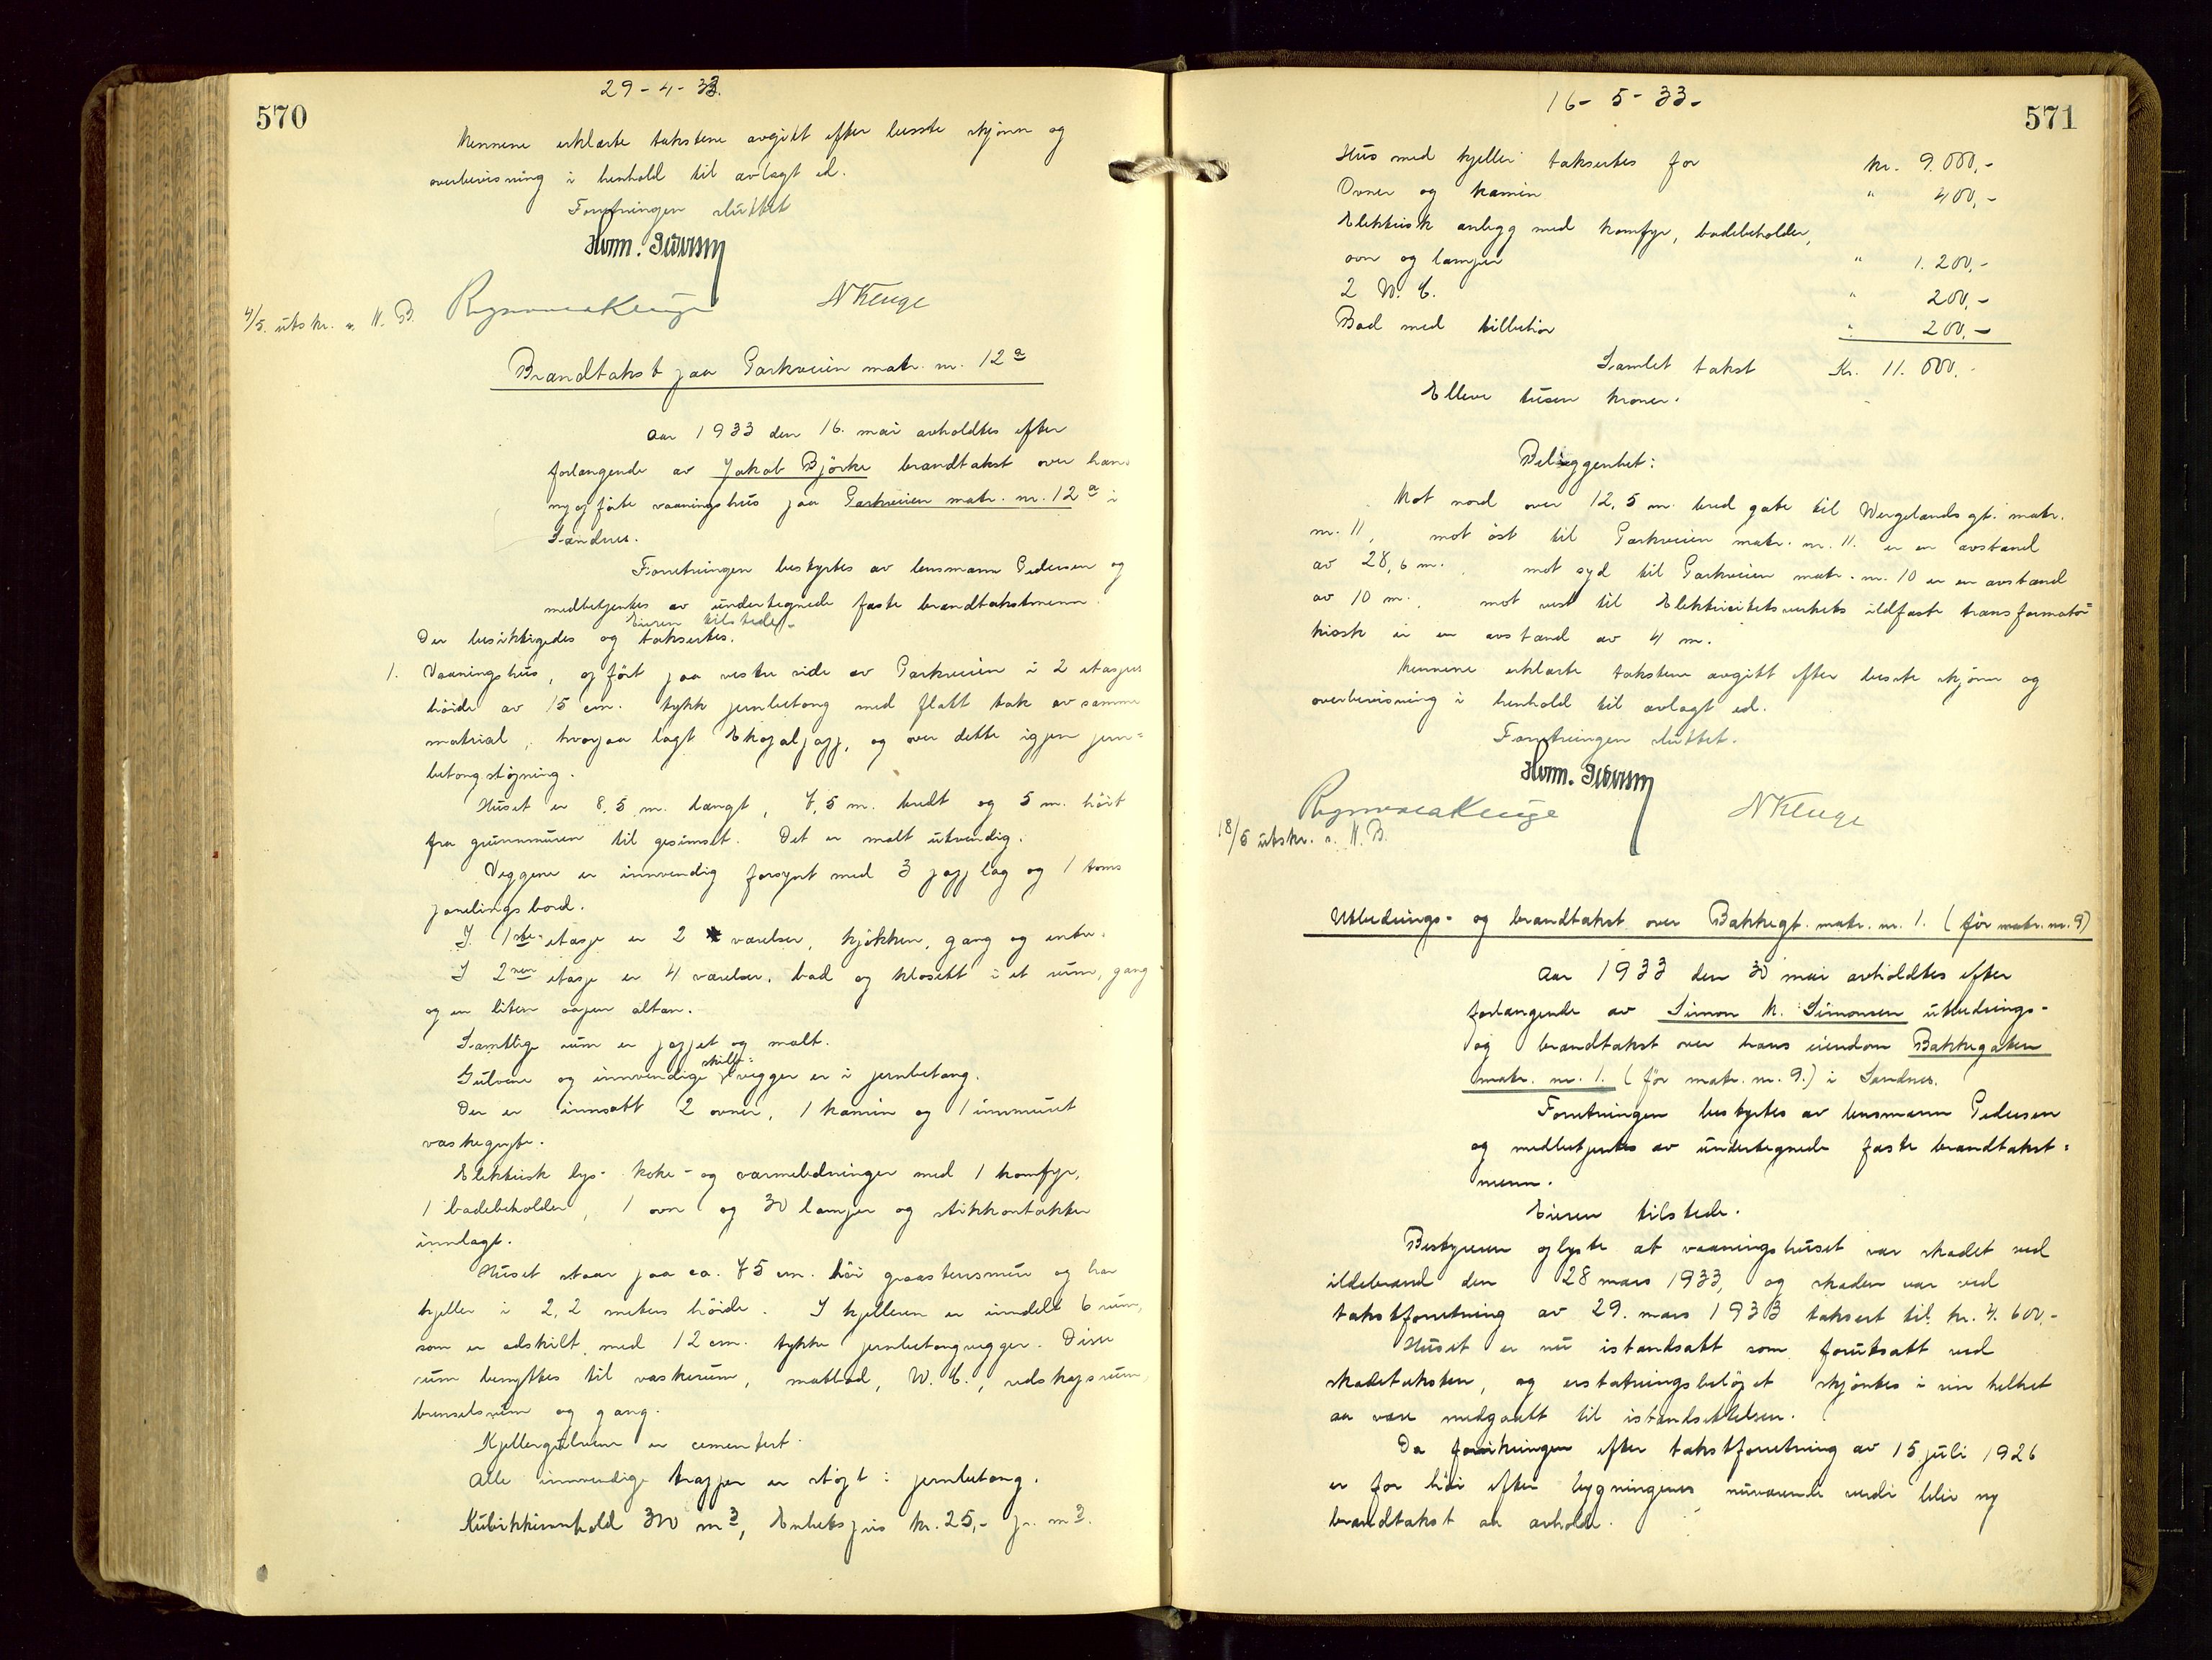 570
29-4-33.
Mennene erklærte takstene avgitt efter beste skjønn og
overbevisning i henhold til avlagt ed.
Forretningen sluttet
4/5. utskr. s. N. B.
N Kluge
Brandtakst paa Parkveien matr. nr. 12 a
Aar 1933 den 16. mai avholdtes efter
forlangende av Jakob Björke brandtakst over hans
nyopförte vaaningshus paa Parkveien matr. nr. 12 a i
Sandnes.
Forretningen bestyrtes av lensmann Pedersen og
medbetjentes av undertegnede faste brandtakstmenn.
Eieren tilstede.
Der besiktigedes og taksertes.
1. Vaaningshus, opfört paa vestre side av Parkveien i 2 etasjers
höide av 15 cm. tykk jernbetong med flatt tak av samme
matrial, hvorpaa lagt Ekspalpapp, og over dette igjen jern=
betongstöpning.
Huset er 8,5 m. langt, 7,5 m. bredt og 5 m. höit
fra grunnmuren til gesimset. Det er malt utvendig.
Veggene er innvendig forsynt med 3 papplag og 1 toms
panelingsbord.
I 1ste etasje er 2 værelser, kjökken, gang og entre.
I 2nen etasje er 4 værelser, bad og klosett i et rum, gang
og en liten aapen altan.
Samtlige rum er pappet og malt.
Gulvene og innvendige skille=vegger er i jernbetong.
Der er innsatt 2 ovner, 1 kamin og 1 innmuret
vaskegryte.
Elektrisk lys- koke- og varmeledninger med 1 komfyr,
1 badebeholder, 1 ovn og 30 lamper og stikkontakter
innlagt.
Huset staar paa ca. 75 cm. höi graastensmur og har
kjeller i 2,2 meters höide. I kjelleren er inndelt 6 rum,
som er adskilt med 12 cm. tykke jernbetongvegger. Disse
rum benyttes til vaskerum, matbod, W. C., redskapsrum,
brenselsrum og gang.
Kjellergulvene er cementert.
Alle innvendige trapper er stöpt i jernbetong.
Kubikkinnhold 300 m3, Enhetspris kr. 25,- pr. m3.
571
16-5-33-
Hus med kjeller taksertes for kr. 9.000,-
Ovner og kamin " 400,-
Elektrisk anlegg med komfyr, badebeholder,
ovn og lamper " 1.200,-
2 W. C. " 200,-
Bad med tilbehör " 200,-
Samlet takst Kr. 11.000,-
Elleve tusen kroner.
Beliggenhet:
Mot nord over 12,5 m. bred gate til Wergelandsgt. matr.
nr. 11, mot öst til Parkveien matr. nr. 11. er en avstand
av 28,6 m. mot syd til Parkveien matr. nr. 10 er en avstand
av 10 m., mot vest til Elektricitetsverkets ildfaste transformator=
kiosk er en avstand av 4 m.
Mennene erklærte takstene avgitt efter beste skjönn og
overbevisning i henhold til avlagt ed.
Forretningen sluttet.
N Kluge
18/5 utskr. s. N. B.
Utbedrings- og brandtakst over Bakkegt. matr. nr. 1. (för matr. nr. 9)
Aar 1933 den 30 mai avholdtes efter
forlangende av Simon M. Simonsen utbedrings-
og brandtakst over hans eiendom Bakkegaten
matr. nr. 1. (för matr. nr. 9.) i Sandnes.
Forretningen bestyrtes av lensmann Pedersen
og medbetjentes av undertegnede faste brandtakst=
menn.
Eieren tilstede.
Bestyreren oplyste at vaaningshuset var skadet ved
ildebrand den 28 mars 1933, og skaden var ved
takstforretning av 29. mars 1933 taksert til kr. 4.600,-
Huset er nu istandsatt som forutsatt ved
skadetaksten, og erstatningsbelöpet skjöntes i sin helhet
aa være medgaatt til istandsettelsen.
Da forsikringen efter takstforretning av 15 juli 1926
er for höi efter bygningenes nuværende verdi blir ny
brandtakst aa avholde.